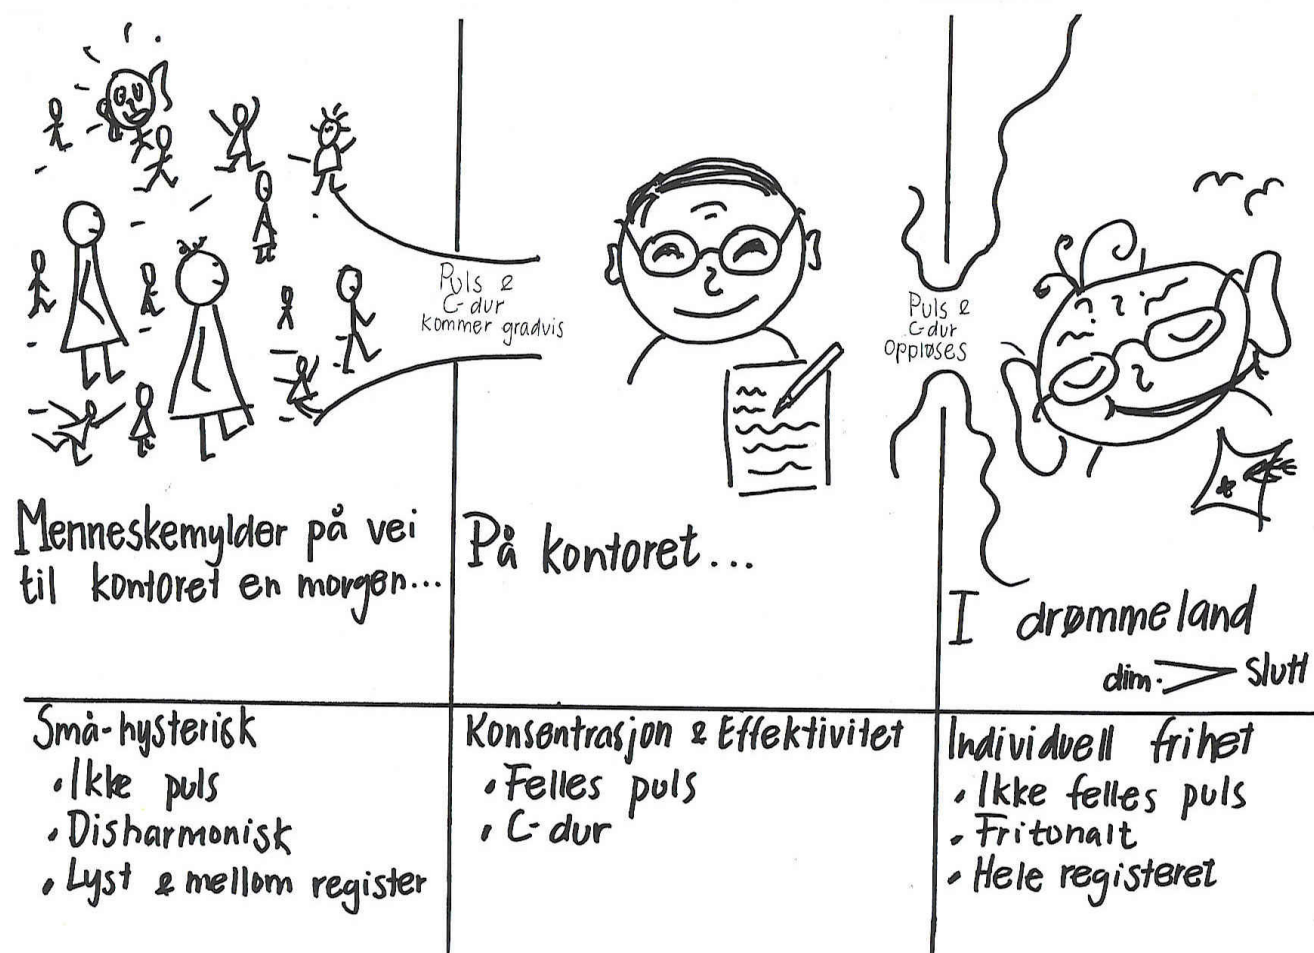 Puls &
C-dur
kommer gradvis
Puls &
C-dur
oppløses
Menneskemylder på vei
til kontoret en morgen...
På kontoret...
I drømmeland
dim. > slutt
Små-hysterisk
• Ikke puls
• Disharmonisk
• Lyst & mellom register
Konsentrasjon & Effektivitet
• Felles puls
• C-dur
Individuell frihet
• Ikke felles puls
• Fritonalt
• Hele registeret